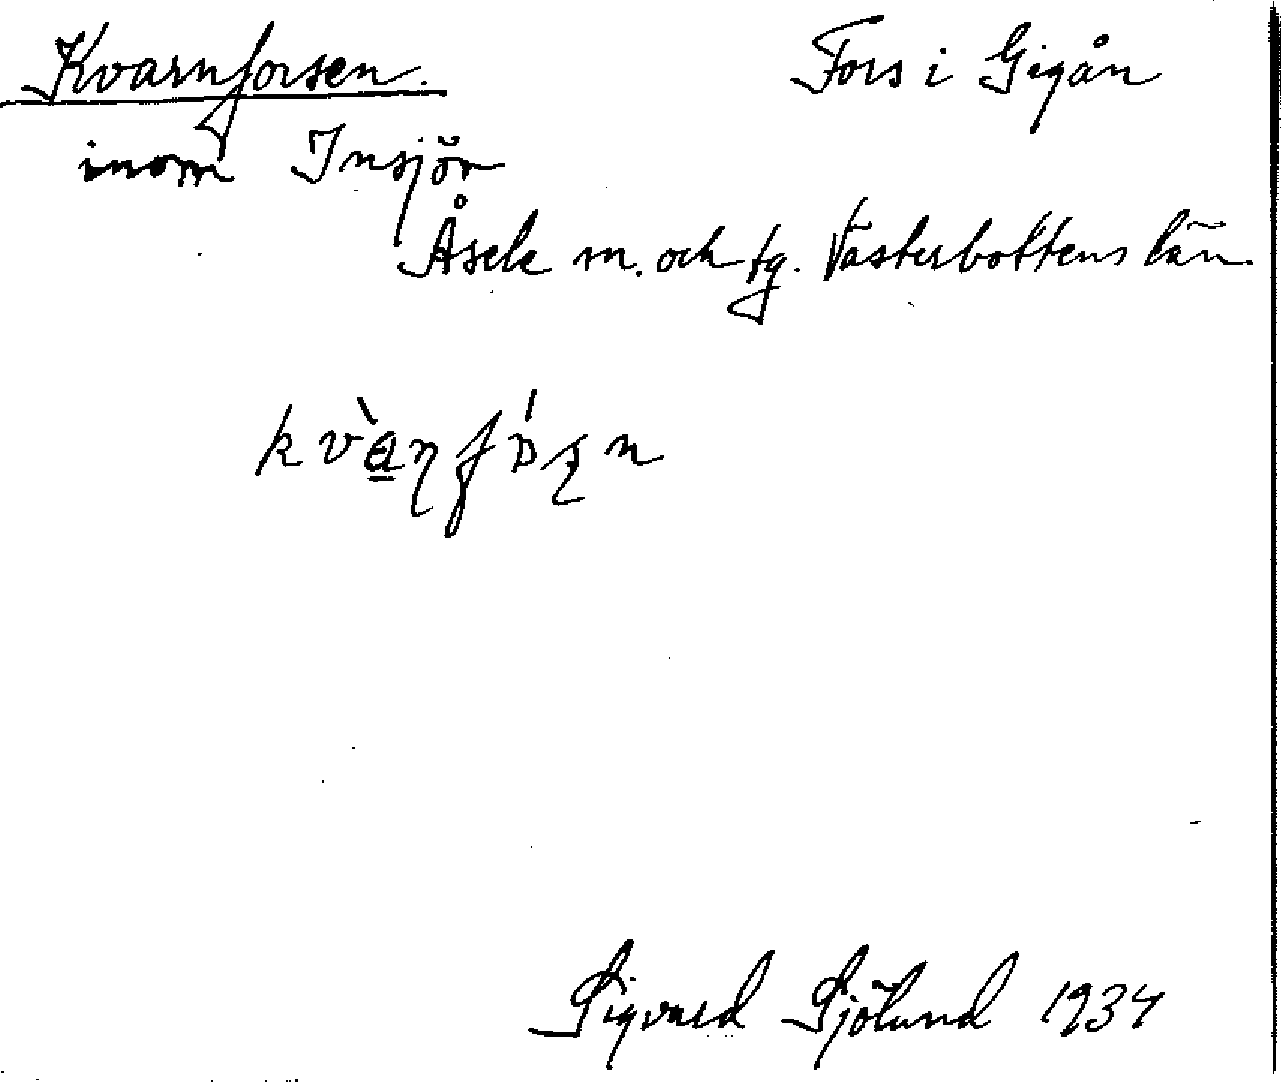 Kvarnforsen. Fors i Gigån
inom Insjön
Åsele sn. och tg. Västerbottens län.
Sigvard Sjölund 1934